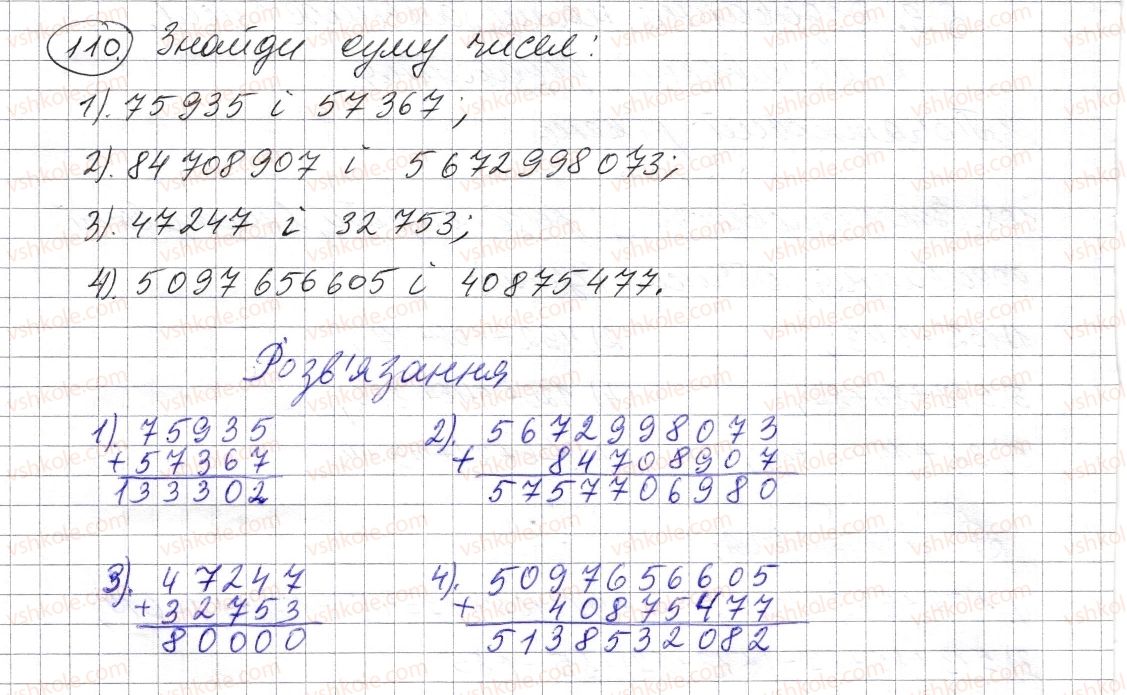 110. Знайди суму чисел:
1). 75935 і 57367;
2). 84708907 і 5672998073;
3). 47247 і 32753;
4). 5097656605 і 40875477.
Розв'язання
1). 75935
+ 57367
133302
2). 5672998073
+ 84708907
5757706980
3). 47247
+ 32753
80000
4). 5097656605
+ 40875477
5138532082